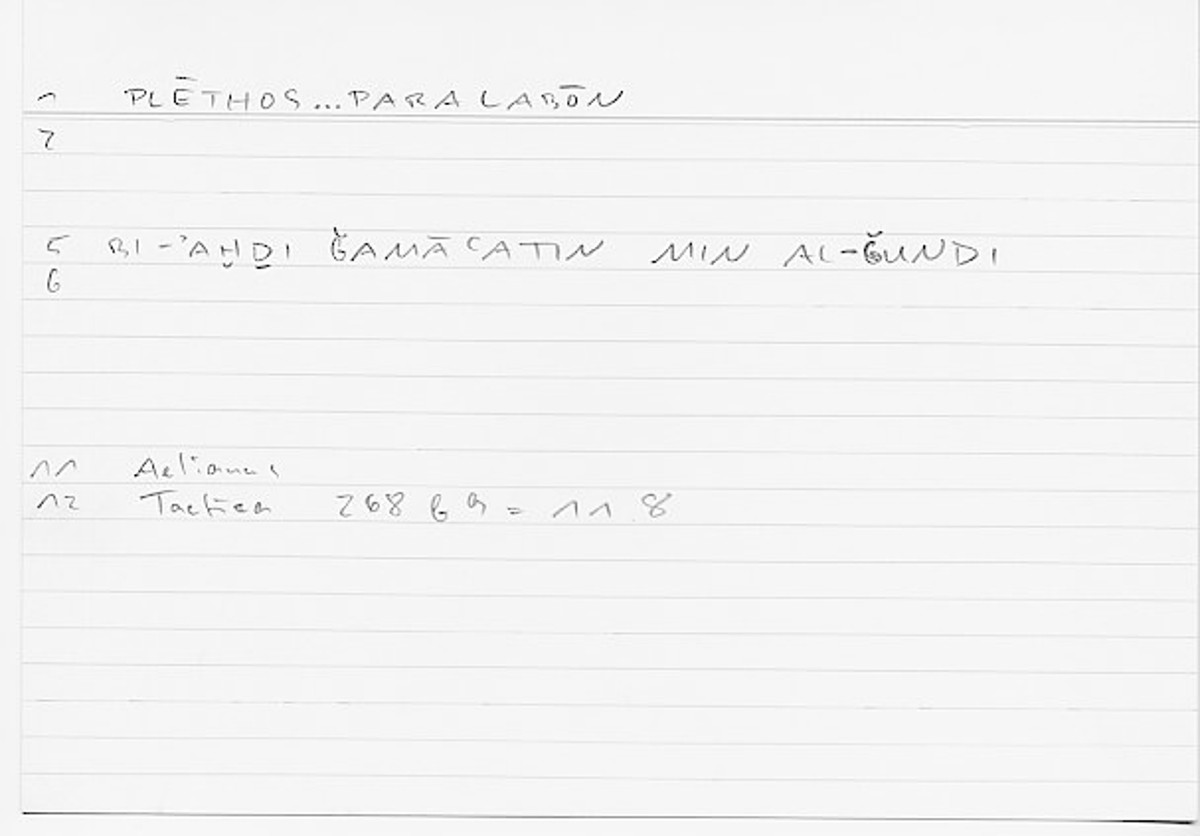 1 PLĒTHOS...PARALABŌN
2
5 BI-ʾAḪḎI ǦAMĀʿATIN MIN AL-ǦUNDI
6
11 Aelianus
12 Tactica 268 b 9 = 11 8